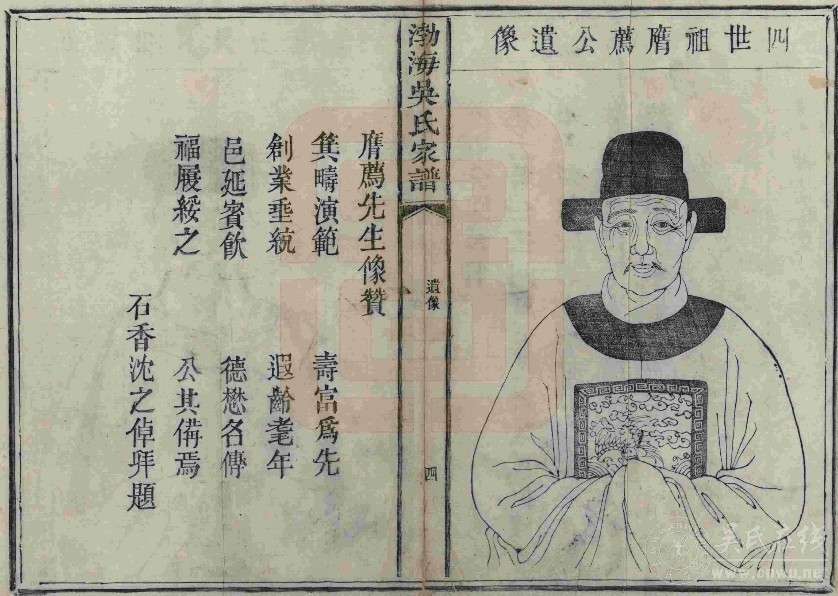 四世祖膺薦公遺像
渤海吳氏家譜
遺像
四
膺薦先生像贊
箕疇演範 壽富為先
創業垂統 遐齡耄年
邑延賓飲 德懋名傳
福履綏之 公其備焉
石香沈之倬拜題
吳氏在线
www.cnwu.net